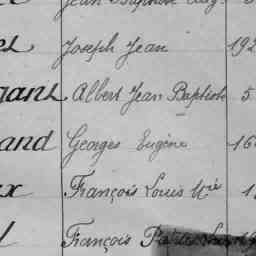 Jean Baptiste Aug.
Joseph Jean 192
gans Albert Jean Baptiste 5
and Georges Eugène 16
x François Louis Mie 1
François